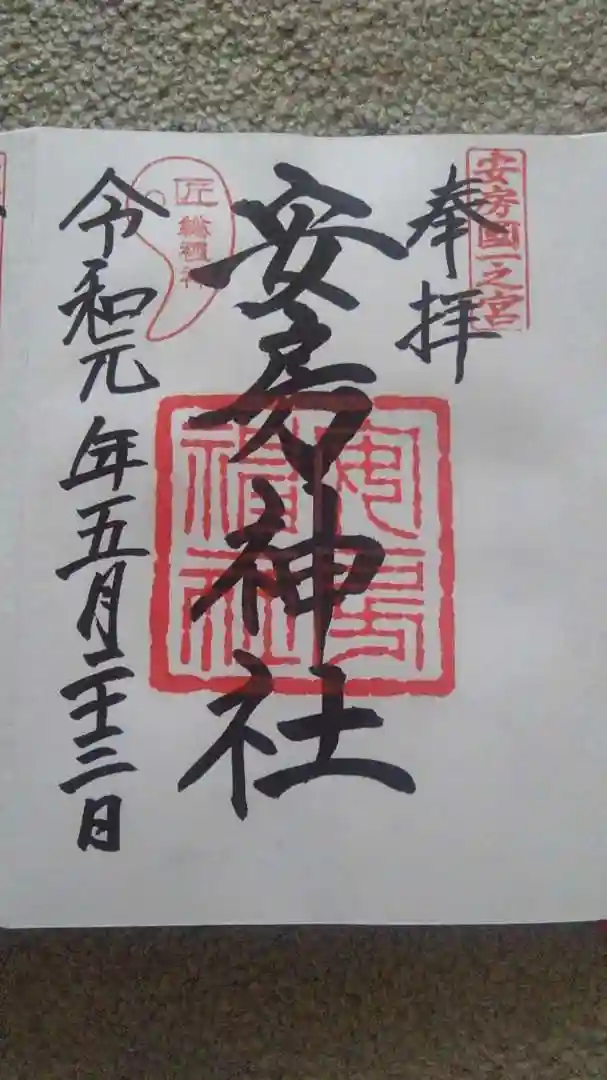 安房國一之宮
奉拝
安房神社
安房神社
匠
令和元年五月二十三日